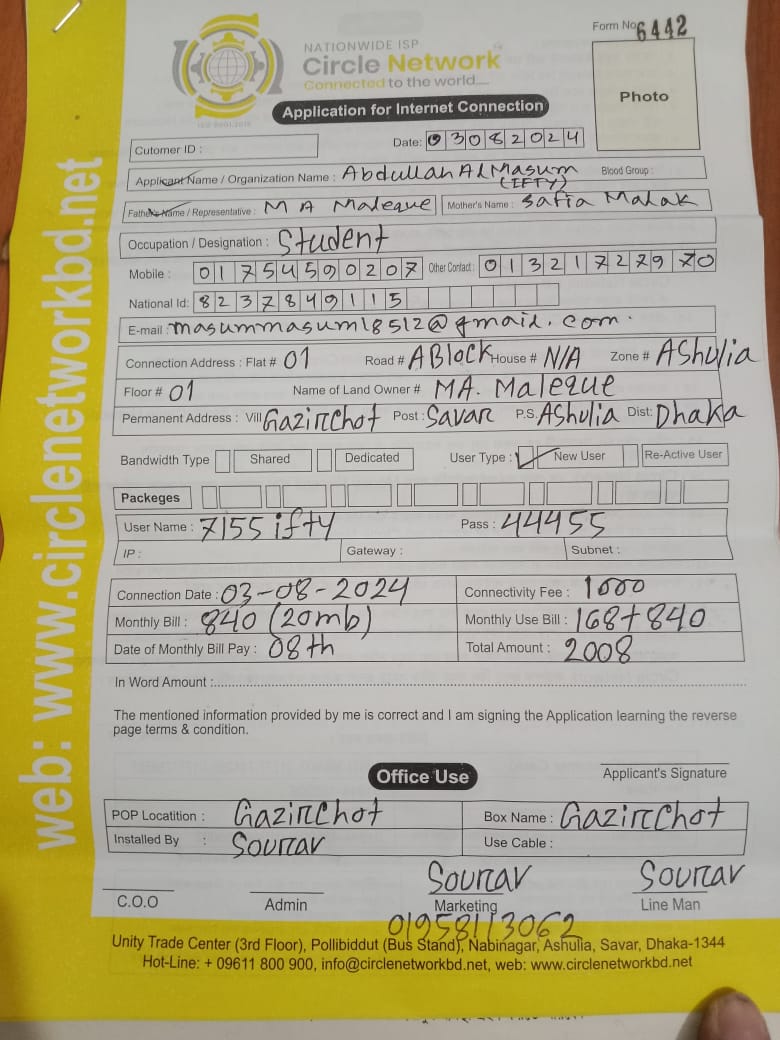 Form No 6442
NATIONWIDE ISP
Circle Network
Connected to the world....
ISO 9001:2015
Application for Internet Connection
Photo
Cutomer ID :
Date: 03082024
Applicant Name / Organization Name : Abdullah Al Masum (IFTY) Blood Group :
Father's Name / Representative : M A Maleque Mother's Name : Safia Malak
Occupation / Designation : Student
Mobile : 01754590207 Other Contact : 01321722970
National Id: 8237849115
E-mail : masummasum18512@gmail.com.
Connection Address : Flat # 01 Road # A Block House # N/A Zone # AShulia
Floor # 01 Name of Land Owner # MA. Maleque
Permanent Address : Vill Gazirchot Post : Savar P.S. AShulia Dist: Dhaka
Bandwidth Type Shared Dedicated User Type : New User Re-Active User
Packeges
User Name : 7155ifty Pass : 44455
IP : Gateway : Subnet :
Connection Date : 03-08-2024 Connectivity Fee : 1000
Monthly Bill : 840 (20mb) Monthly Use Bill : 168+840
Date of Monthly Bill Pay : 08th Total Amount : 2008
In Word Amount :
The mentioned information provided by me is correct and I am signing the Application learning the reverse
page terms & condition.
Applicant's Signature
Office Use
POP Locatition : Gazirchot Box Name : Gazirchot
Installed By : Sourav Use Cable :
Sourav Sourav
C.O.O Admin Marketing Line Man
01958113062
Unity Trade Center (3rd Floor), Pollibiddut (Bus Stand), Nabinagar, Ashulia, Savar, Dhaka-1344
Hot-Line: + 09611 800 900, info@circlenetworkbd.net, web: www.circlenetworkbd.net
web: www.circlenetworkbd.net